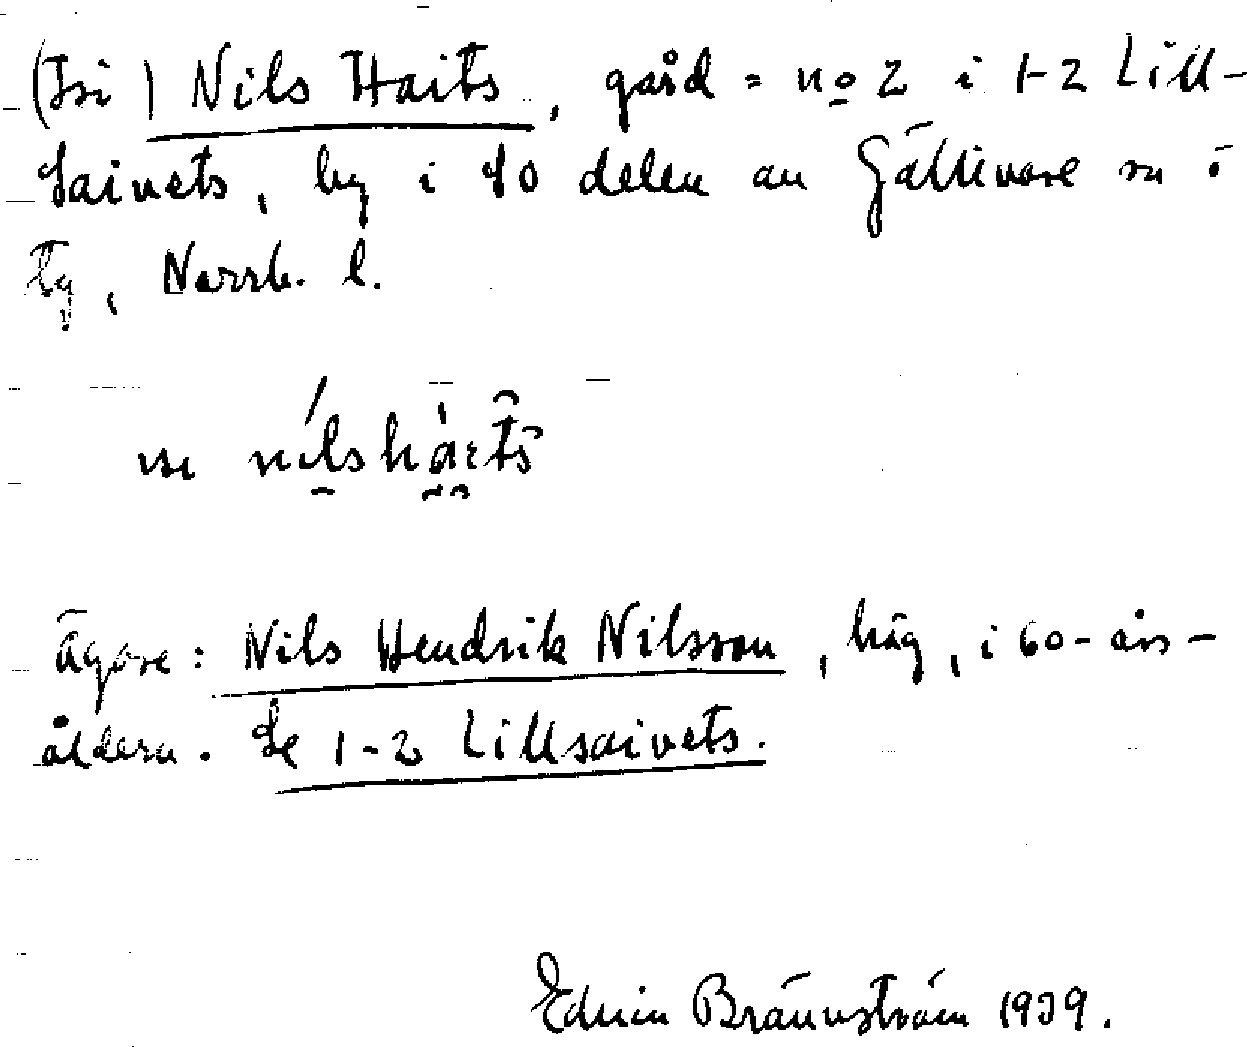 (Isi) Nils Haits, gård = no 2 i 1-2 Lill-
Saivets, by i SO delen av Gällivare sn o
tg, Norrb. l.
nilshaits
ägare: Nils Hendrik Nilsson, häg, i 60-års-
åldern. Se 1-2 Lillsaivets.
Edvin Brännström 1939.